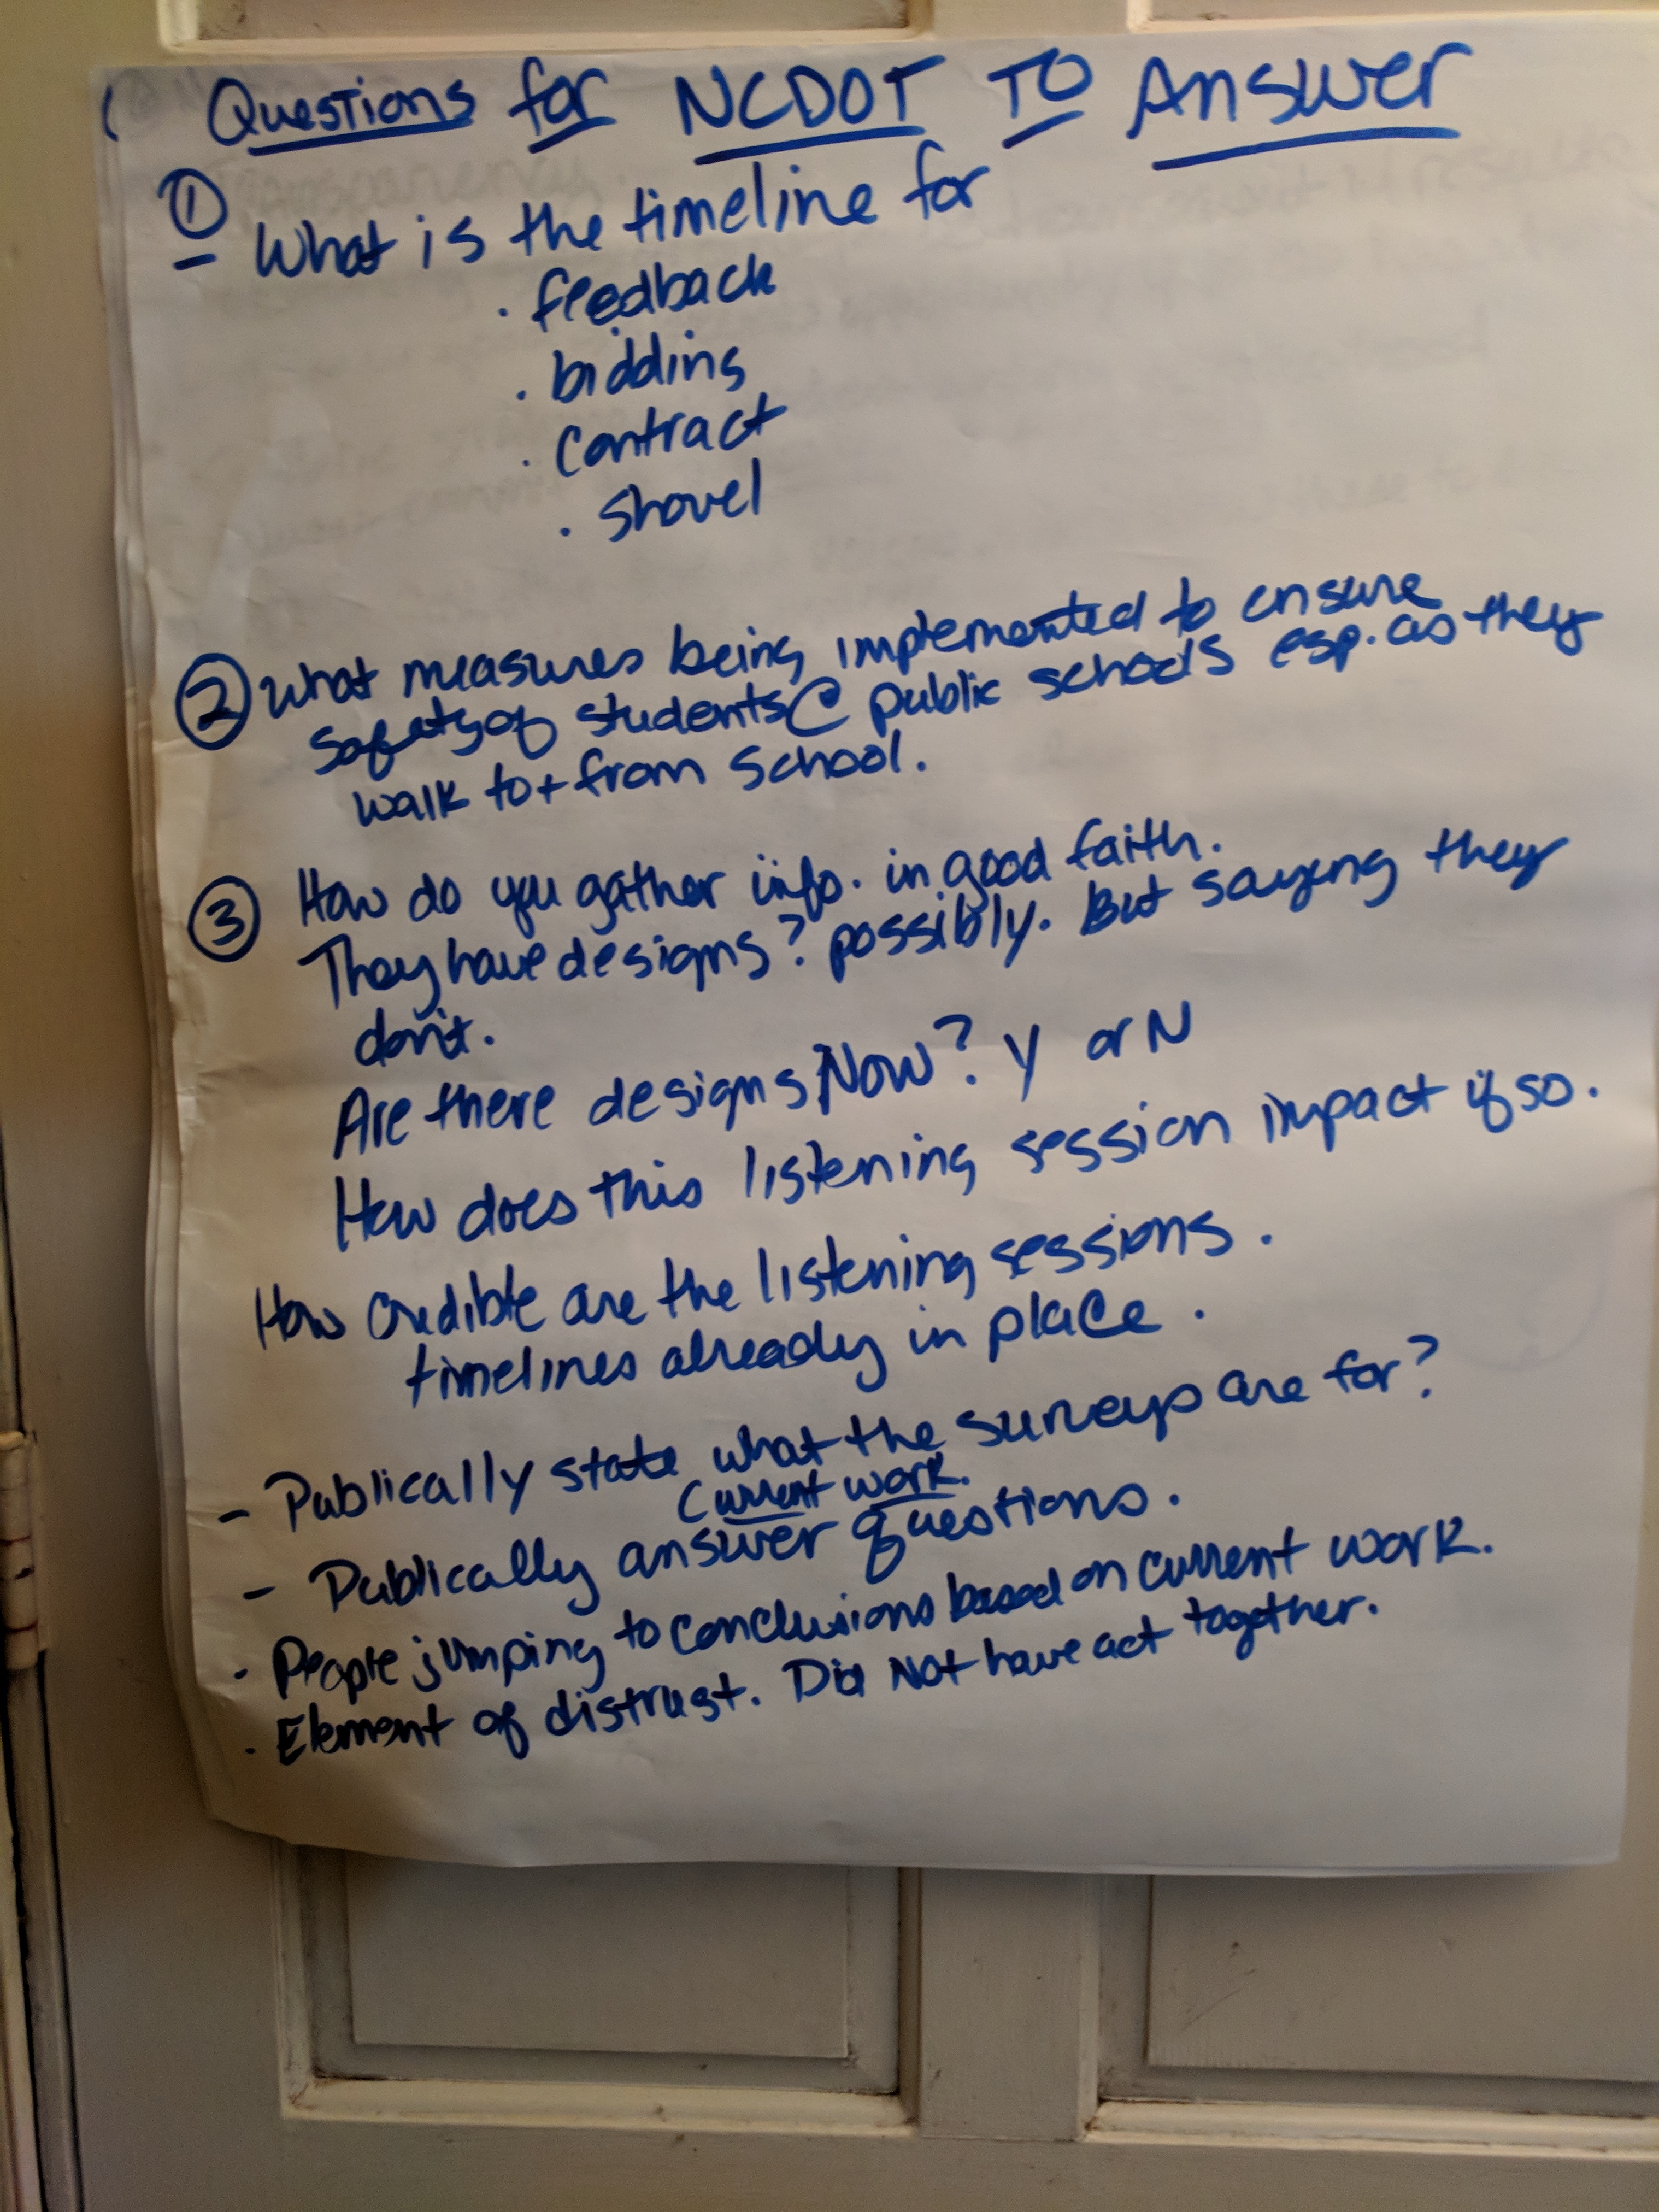 Questions for NCDOT TO Answer
① What is the timeline for
· feedback
· bidding
· Contract
· Shovel
② What measures being implemented to ensure
Safety of students @ public schools esp. as they
walk to + from School.
③ How do you gather info. in good faith.
They have designs? possibly. But saying they
don't.
Are there designs Now? Y or N
How does this listening session impact if so.
How credible are the listening sessions.
timelines already in place.
- Publically state what the surveys are for?
Current work.
- Publically answer questions.
· People jumping to conclusions based on current work.
· Element of distrust. Did Not have act together.